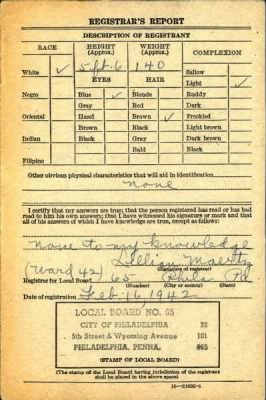 REGISTRAR'S REPORT
DESCRIPTION OF REGISTRANT
RACE HEIGHT (Approx.) WEIGHT (Approx.) COMPLEXION
5 ft. 6 140
White ✓ Sallow
EYES HAIR Light ✓
Negro Blue ✓ Blonde Ruddy
Gray Red Dark
Oriental Hazel Brown ✓ Freckled
Brown Black Light brown
Indian Black Gray Dark brown
Bald Black
Filipino
Other obvious physical characteristics that will aid in identification
none
I certify that my answers are true; that the person registered has read or has had
read to him his own answers; that I have witnessed his signature or mark and that
all of his answers of which I have knowledge are true, except as follows:
none to my knowledge
Lillian
(Ward 42) (Signature of registrar)
Registrar for Local Board 65 Phila Pa
(Number) (City or county) (State)
Date of registration Feb 16, 1942
LOCAL BOARD NO. 65
CITY OF PHILADELPHIA 22
5th Street & Wyoming Avenue 101
PHILADELPHIA, PENNA. 065
(STAMP OF LOCAL BOARD)
(The stamp of the Local Board having jurisdiction of the registrant
shall be placed in the above space)